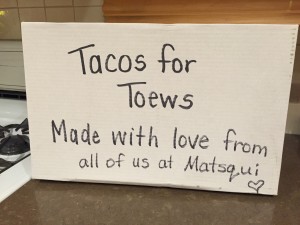 Tacos for
Toews
Made with love from
all of us at Matsqui